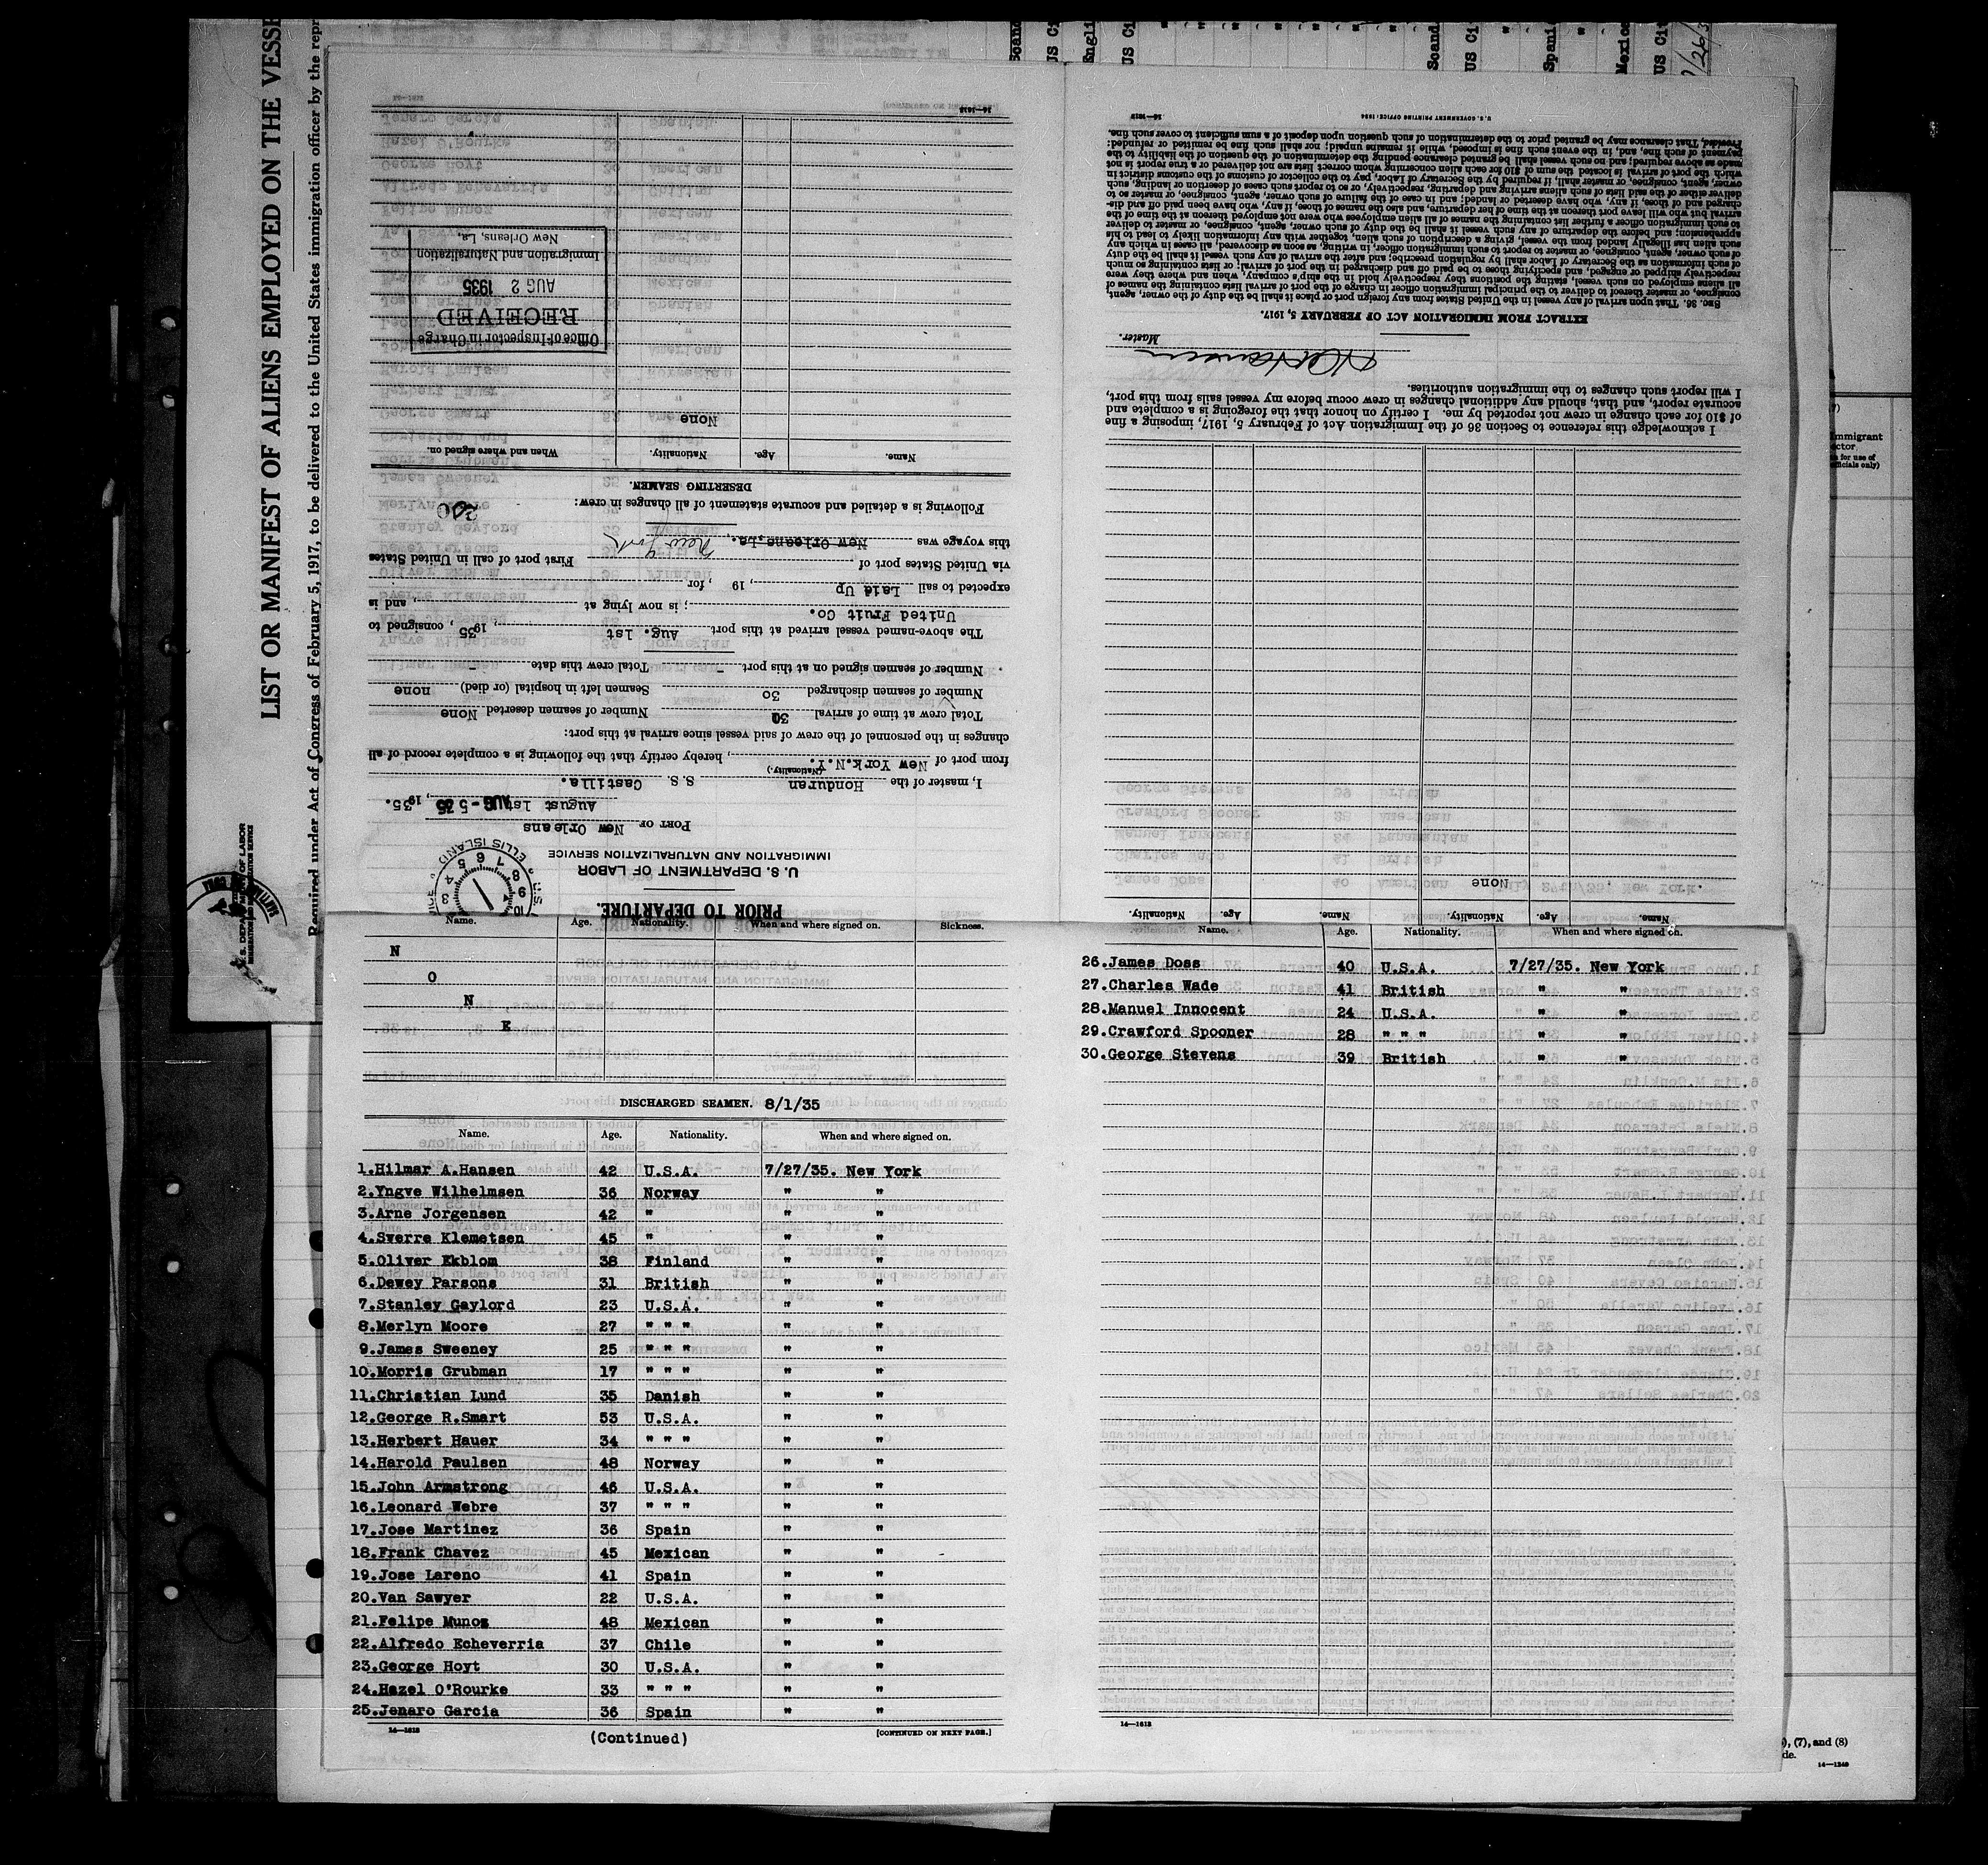 LIST OR MANIFEST OF ALIENS EMPLOYED ON THE VESSE
Required under Act of Congress of February 5, 1917, to be delivered to the United States immigration officer by the repr
U.S. DEPARTMENT OF LABOR
IMMIGRATION AND NATURALIZATION SERVICE
Scand
US Ci
Engli
US Ci
Scand
US Ci
Spani
Mexic
US Cit
PRIOR TO DEPARTURE.
U. S. DEPARTMENT OF LABOR
IMMIGRATION AND NATURALIZATION SERVICE
ELLIS ISLAND
PORT OF New Orleans
August 1st AUG - 5 35, 1935.
I, master of the Honduran S. S. Castilla.
(Nationality.)
from port of New York.N.Y., hereby certify that the following is a complete record of all
changes in the personnel of the crew of said vessel since arrival at this port:
Total crew at time of arrival 30 Number of seamen deserted None
Number of seamen discharged 30 Seamen left in hospital (or died) none
Number of seamen signed on at this port - Total crew this date -
The above-named vessel arrived at this port Aug. 1st, 1935, consigned to
United Fruit Co.; is now lying at , and is
expected to sail Laid Up, 19 , for
via United States port of First port of call in United States
this voyage was New Orleans, La., New York
Following is a detailed and accurate statement of all changes in crew:
200
DESERTING SEAMEN.
Name. Age. Nationality. When and where signed on.
None
Office of Inspector in Charge
RECEIVED
AUG 2 1935
Immigration and Naturalization
New Orleans, La.
14—1618
Name. Age. Nationality. Name. Age. Nationality.
None
I acknowledge this reference to Section 36 of the Immigration Act of February 5, 1917, imposing a fine
of $10 for each change in crew not reported by me. I certify on honor that the foregoing is a complete and
accurate report, and that, should any additional changes in crew occur before my vessel sails from this port,
I will report such changes to the immigration authorities.
Master.
EXTRACT FROM IMMIGRATION ACT OF FEBRUARY 5, 1917.
SEC. 36. That upon arrival of any vessel in the United States from any foreign port or place it shall be the duty of the owner, agent,
consignee, or master thereof to deliver to the principal immigration officer in charge of the port of arrival lists containing the names of
all aliens employed on such vessel, stating the positions they respectively hold in the ship's company, when and where they were
respectively shipped or engaged, and specifying those to be paid off and discharged in the port of arrival; or lists containing so much
of such information as the Secretary of Labor shall by regulation prescribe; and after the arrival of any such vessel it shall be the duty
of such owner, agent, consignee, or master to report to such immigration officer, in writing, as soon as discovered, all cases in which any
such alien has illegally landed from the vessel, giving a description of such alien, together with any information likely to lead to his
apprehension; and before the departure of any such vessel it shall be the duty of such owner, agent, consignee, or master to deliver
to such immigration officer a further list containing the names of all alien employees who were not employed thereon at the time of the
arrival but who will leave port thereon at the time of her departure, and also the names of those, if any, who have been paid off and dis-
charged and of those, if any, who have deserted or landed; and in case of the failure of such owner, agent, consignee, or master so to
deliver either of the said lists of such aliens arriving and departing, respectively, or so to report such cases of desertion or landing, such
owner, agent, consignee, or master shall, if required by the Secretary of Labor, pay to the collector of customs of the customs district in
which the port of arrival is located the sum of $10 for each alien concerning whom correct lists are not delivered or a true report is not
made as above required; and no such vessel shall be granted clearance pending the determination of the question of the liability to the
payment of such fine, and, in the event such fine is imposed, while it remains unpaid; nor shall such fine be remitted or refunded:
Provided, That clearance may be granted prior to the determination of such question upon deposit of a sum sufficient to cover such fine.
U. S. GOVERNMENT PRINTING OFFICE: 1934 14—1618
Name. Age. Nationality. When and where signed on. Sickness.
N
O
N
E
DISCHARGED SEAMEN. 8/1/35
Name. Age. Nationality. When and where signed on.
1.Hilmar A.Hansen 42 U.S.A. 7/27/35. New York
2.Yngve Wilhelmsen 36 Norway " "
3.Arne Jorgensen 42 " " "
4.Sverre Klemetsen 45 " " "
5.Oliver Ekblom 38 Finland " "
6.Dewey Parsons 31 British " "
7.Stanley Gaylord 23 U.S.A. " "
8.Merlyn Moore 27 " " " " "
9.James Sweeney 25 " " " " "
10.Morris Grubman 17 " " " " "
11.Christian Lund 35 Danish " "
12.George R.Smart 53 U.S.A. " "
13.Herbert Hauer 34 " " " " "
14.Harold Paulsen 48 Norway " "
15.John Armstrong 46 U.S.A. " "
16.Leonard Webre 37 " " " " "
17.Jose Martinez 36 Spain " "
18.Frank Chavez 45 Mexican " "
19.Jose Lareno 41 Spain " "
20.Van Sawyer 22 U.S.A. " "
21.Felipe Munoz 48 Mexican " "
22.Alfredo Echeverria 37 Chile " "
23.George Hoyt 30 U.S.A. " "
24.Hazel O'Rourke 33 " " " " "
25.Jenaro Garcia 36 Spain " "
14—1618 (Continued) [CONTINUED ON NEXT PAGE.]
Name. Age. Nationality. When and where signed on.
26.James Doss 40 U.S.A. 7/27/35. New York
27.Charles Wade 41 British " "
28.Manuel Innocent 24 U.S.A. " "
29.Crawford Spooner 28 " " " " "
30.George Stevens 39 British " "
14—1618
Immigrant
ector
for use of
officials only)
), (7), and (8)
de.
14—1240